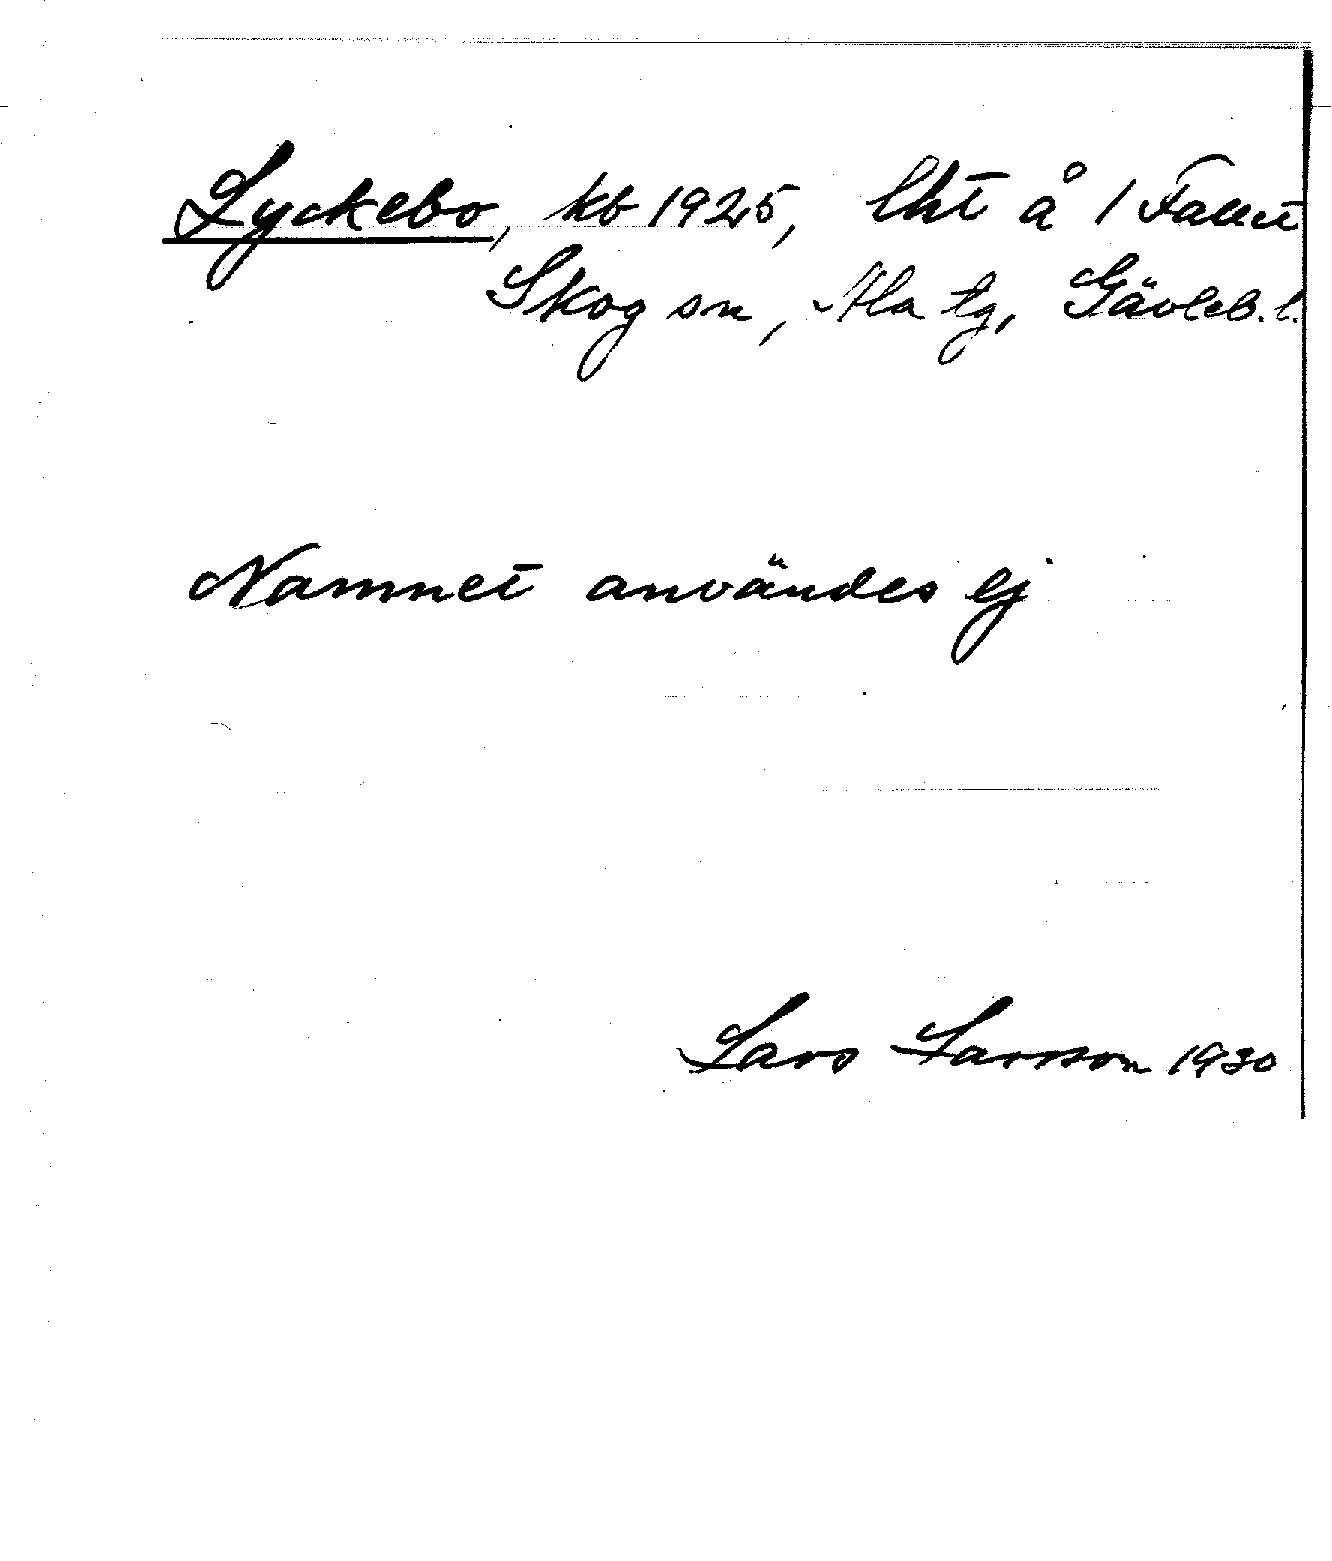 Lyckebo, kb 1925, lht å 1 Fallet
Skog sn, Ala tg, Gävleb. l.
Namnet användes ej
Lars Larsson 1930